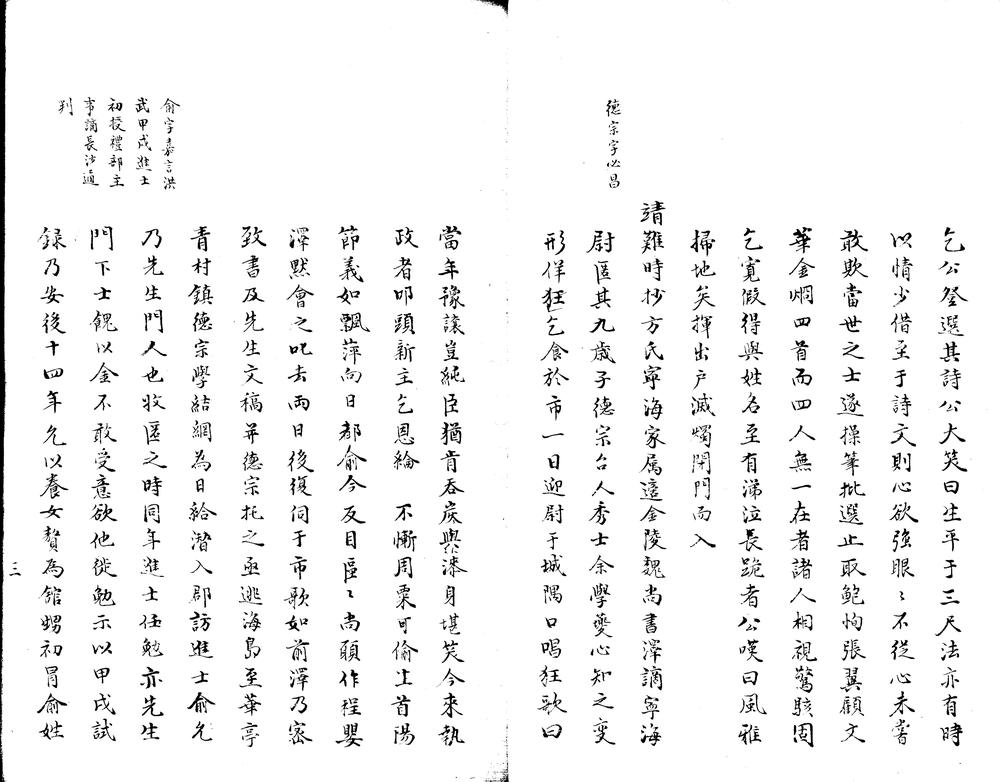 乞公登選其詩公大笑曰生平于三尺法亦有時
以情少借至于詩文則心欲強眼〻不從心未嘗
敢欺當世之士遂操筆批選止取鮑恂張翼顧文
華金烱四首而四人無一在者諸人相視驚駭固
乞寬假得與姓名至有涕泣長跪者公嘆曰風雅
掃地矣揮出户滅燭閉門而入
德宗字必昌
靖難時抄方氏寧海家属遠金陵魏尚書澤謫寧海
尉匿其九歲子德宗台人秀士余學夔心知之变
形佯狂乞食於市一日迎尉于城隅口唱狂歌曰
當年豫讓豈純臣猶肯吞炭與漆身堪笑今來執
政者叩頭新主乞恩綸　不慚周粟可偷生首陽
節義如飄萍向日都俞今反目區〻尚願作程嬰
澤默會之叱去兩日後復伺于市歌如前澤乃密
致書及先生文稿并德宗托之亟逃海島至華亭
青村鎮德宗學結網為日給潛入郡訪進士俞允
乃先生門人也收匿之時同年進士任勉亦先生
門下士餽以金不敢受意欲他徙勉示以甲戌試
録乃安後十四年允以養女贅為館甥初冒俞姓
俞字嘉言洪
武甲戌進士
初授禮部主
事謫長沙通
判
三